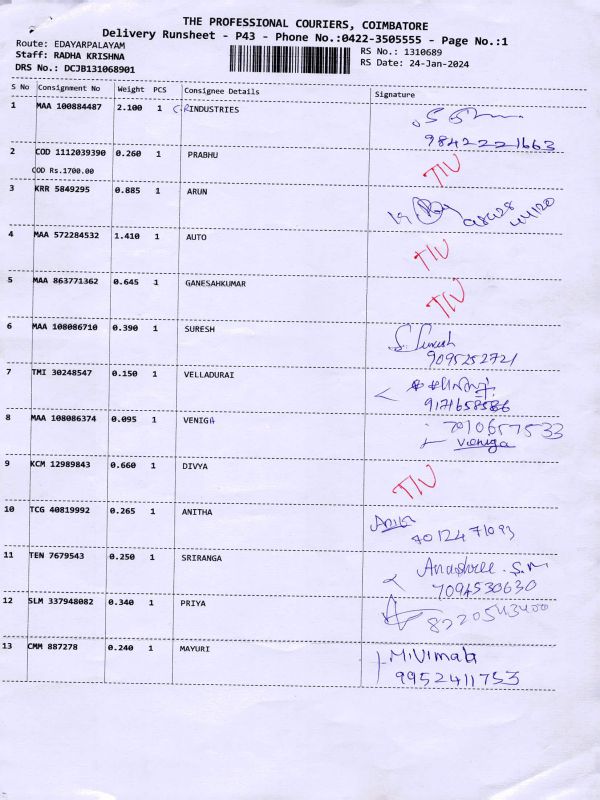 THE PROFESSIONAL COURIERS, COIMBATORE
Delivery Runsheet - P43 - Phone No.:0422-3505555 - Page No.:1
Route: EDAYARPALAYAM
Staff: RADHA KRISHNA
DRS No.: DCJB131068901
RS No.: 1310689
RS Date: 24-Jan-2024
S No Consignment No Weight PCS Consignee Details Signature
1 MAA 100884487 2.100 1 C.R INDUSTRIES
9842221663
2 COD 1112039390 0.260 1 PRABHU TIV
COD Rs.1700.00
3 KRR 5849295 0.885 1 ARUN
4 MAA 572284532 1.410 1 AUTO TIV
5 MAA 863771362 0.645 1 GANESAHKUMAR TIV
6 MAA 108086710 0.390 1 SURESH S. Suresh
9095252721
7 TMI 30248547 0.150 1 VELLADURAI
9171658586
8 MAA 108086374 0.095 1 VENIGA 7010657533
Veniga
9 KCM 12989843 0.660 1 DIVYA TIV
10 TCG 40819992 0.265 1 ANITHA
7012471093
11 TEN 7679543 0.250 1 SRIRANGA Anushree. S.M
7094530630
12 SLM 337948082 0.340 1 PRIYA
8220543400
13 CMM 887278 0.240 1 MAYURI M.Vimala
9952411753